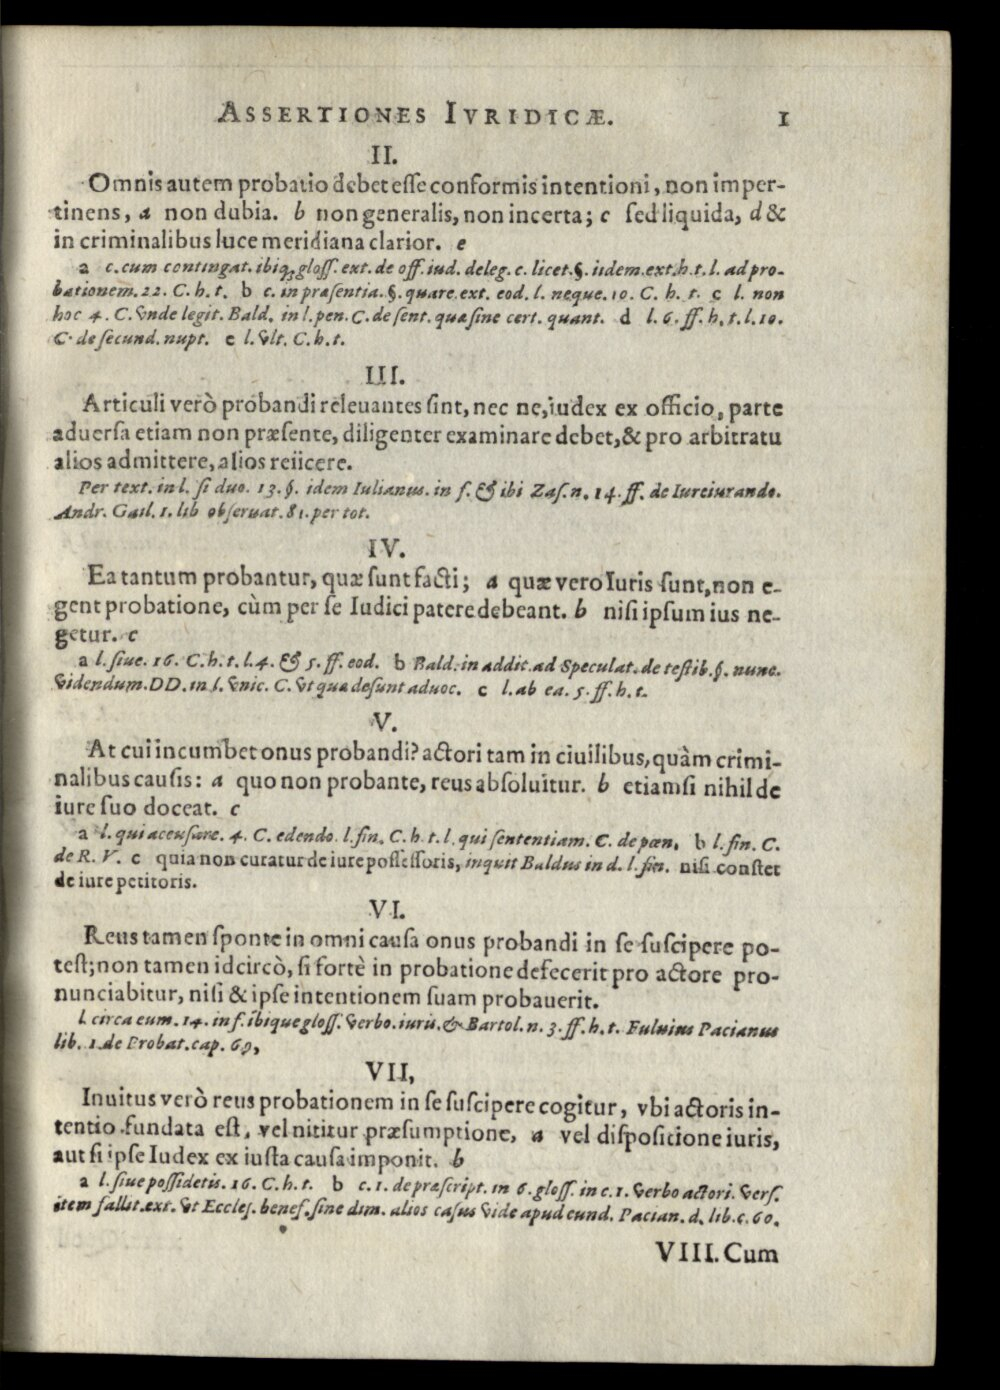 ASSERTIONES IVRIDICÆ. 1
II.
Omnis autem probatio debet esse conformis intentioni, non imper-
tinens, a non dubia. b non generalis, non incerta; c sed liquida, d &
in criminalibus luce meridiana clarior. e
a c. cum contingat. ibiq; gloss. ext. de off. iud. deleg. c. licet. §. iidem. ext. h. t. l. ad pro-
bationem. 22. C. h. t. b c. in præsentia. §. quare. ext. eod. l. neque. 10. C. h. t. c l. non
hoc 4. C. vnde legit. Bald. in l. pen. C. de sent. quæ sine cert. quant. d l. 6. ff. h. t. l. 10.
C. de secund. nupt. e l. vlt. C. h. t.
III.
Articuli verò probandi releuantes sint, nec ne, iudex ex officio, parte
aduersa etiam non præsente, diligenter examinare debet, & pro arbitratu
alios admittere, alios reiicere.
Per text. in l. si duo. 13. §. idem Iulianus. in f. & ibi Zas. n. 14. ff. de Iureiurando.
Andr. Gail. 1. lib obseruat. 81. per tot.
IV.
Ea tantum probantur, quæ sunt facti; a quæ vero Iuris sunt, non e-
gent probatione, cùm per se Iudici patere debeant. b nisi ipsum ius ne-
getur. c
a l. siue. 16. C. h. t. l. 4. & 5. ff. eod. b Bald. in addit. ad Speculat. de testib. §. nunc.
videndum. DD. in l. vnic. C. vt quæ desunt aduoc. c l. ab ea. 5. ff. h. t.
V.
At cui incumbet onus probandi? actori tam in ciuilibus, quàm crimi-
nalibus causis: a quo non probante, reus absoluitur. b etiamsi nihil de
iure suo doceat. c
a l. qui accusare. 4. C. edendo. l. fin. C. h. t. l. qui sententiam. C. de pœn. b l. fin. C.
de R. V. c quia non curatur de iure possessoris, inquit Baldus in d. l. fin. nisi constet
de iure petitoris.
VI.
Reus tamen sponte in omni causa onus probandi in se suscipere po-
test; non tamen idcircò, si fortè in probatione defecerit pro actore pro-
nunciabitur, nisi & ipse intentionem suam probauerit.
l. circa eum. 14. in f. ibique gloss. verbo. iuris. & Bartol. n. 3. ff. h. t. Fuluius Pacianus
lib. 1. de Probat. cap. 69,
VII,
Inuitus verò reus probationem in se suscipere cogitur, vbi actoris in-
tentio fundata est, vel nititur præsumptione, a vel dispositione iuris,
aut si ipse Iudex ex iusta causa imponit. b
a l. siue possidetis. 16. C. h. t. b c. 1. de præscript. in 6. gloss. in c. 1. verbo actori. vers.
item fallit. ext. vt Eccles. benef. sine dim. alios casus vide apud eund. Pacian. d. lib. c. 60.
VIII. Cum